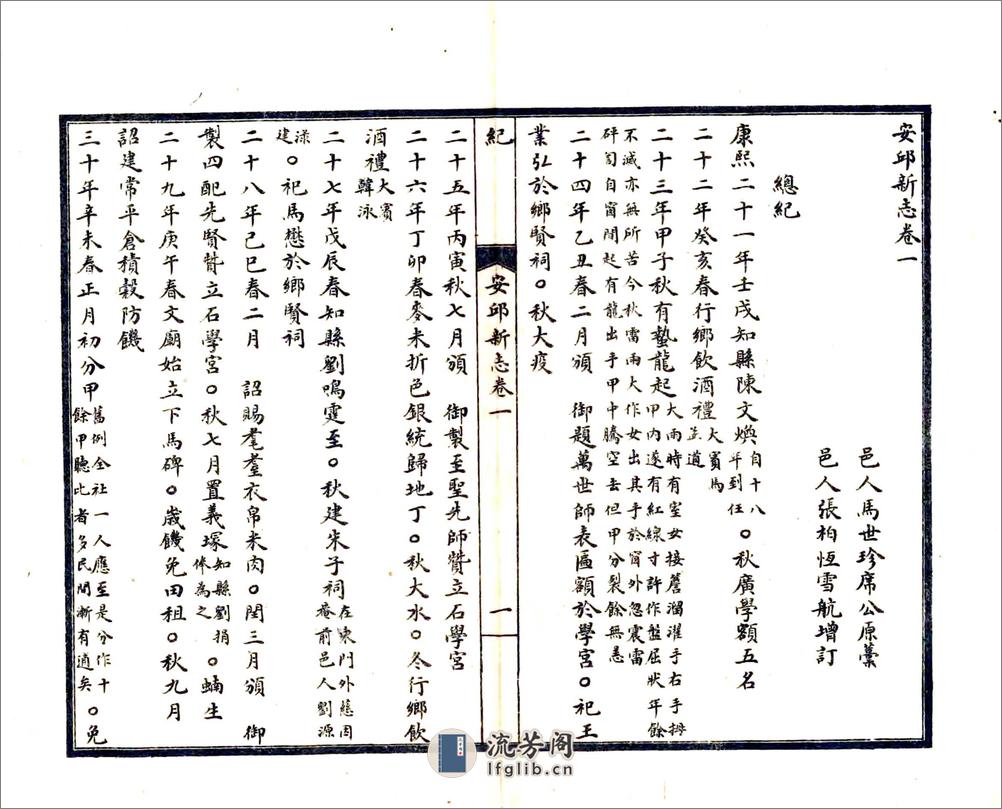 安邱新志卷一
邑人馬世珍席公原藁
邑人張柏恆雪航增訂
總紀
康熙二十一年壬戌知縣陳文煥自十八年到任○秋廣學額五名
二十二年癸亥春行鄉飲酒禮大賓馬益道
二十三年甲子秋有蟄龍起大雨時有室女接簷溜濯手右手拇甲內遂有紅線寸許作盤屈狀年餘不滅亦無所苦今秋雷雨大作女出其手於窗外忽震雷砰訇自窗間起有龍出手甲中騰空去但甲分裂餘無恙
二十四年乙丑春二月頒 御題萬世師表匾額於學宮○祀王
業弘於鄉賢祠○秋大疫
紀 安邱新志卷一 一
二十五年丙寅秋七月頒 御製至聖先師贊立石學宮
二十六年丁卯春麥米折色銀統歸地丁○秋大水○冬行鄉飲
酒禮大賓韓泳
二十七年戊辰春知縣劉鳴雯至○秋建朱子祠在東門外慈周庵前邑人劉源
渌建○祀馬懋於鄉賢祠
二十八年己巳春二月 詔賜耄耋衣帛米肉○閏三月頒 御
製四配先賢贊立石學宮○秋七月置義塚知縣劉捐俸為之○蝻生
二十九年庚午春文廟始立下馬碑○歲饑免田租○秋九月
詔建常平倉積穀防饑
三十年辛未春正月初分甲舊例全社一人應至是分作十餘甲聽比者多民間漸有逋矣○免
流芳阁
lfglib.cn